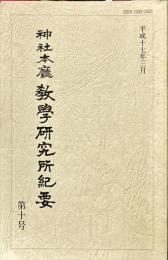 ISSN 1342-2421
平成十七年三月
神社本廳教學研究所紀要
第十号